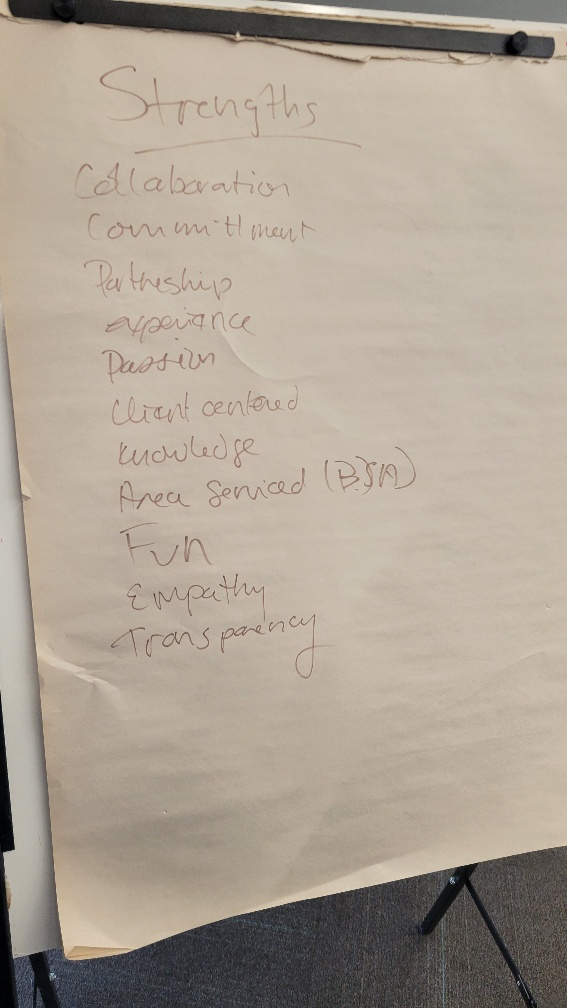 Strengths
Collaboration
Committment
Partneship
experiance
Passion
Client centered
knowledge
Area Serviced
Fun
Empathy
Transparency